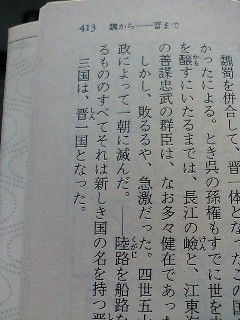 413 魏から――晋まで
魏蜀を併合して、晋一体となったこの国
かったによる。とき呉の孫権もすでに世を去
を醸すにいたるまでは、長江の嶮と、江東海
の善謀忠武の群臣は、なお多々健在であった
しかし、敗るるや、急激だった。四世五十
政によって一朝に滅んだ。――陸路を船路を
るもののすべてそれは新しき国の名を持つ晋
三国は、晋一国となった。